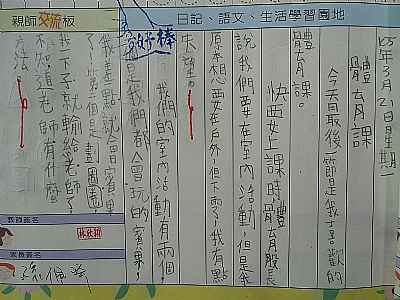 親師交流板
日記、語文、生活學習園地
105年3月21日星期一
體育課
今天最後一節是我丁喜歡的
體育課。
快要上課時,體育股長
說我們要在室內活動,但是我
原本想要在戶外,但下雨了,我有點
失望。
我們的室內活動有兩個,
是我們都會玩的賓果!
好棒
我差點就會賓果
了!第二個是畫圈圈!
我一下子就輸給老師了!
不知道老師有什麼
方法。
教師簽名
家長簽名